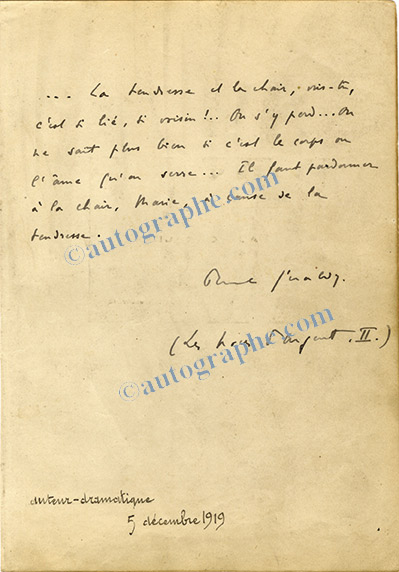 ... La tendresse et la chair, vois-tu,
c'est si lié, si voisin !.. On s'y perd... On
ne sait plus bien si c'est le corps ou
l'âme qu'on serre... Il faut pardonner
à la chair, Marie, à cause de la
tendresse.
©autographe.com
Paul Géraldy.
(Les noces d'argent. II.)
©autographe.com
auteur-dramatique
5 décembre 1919